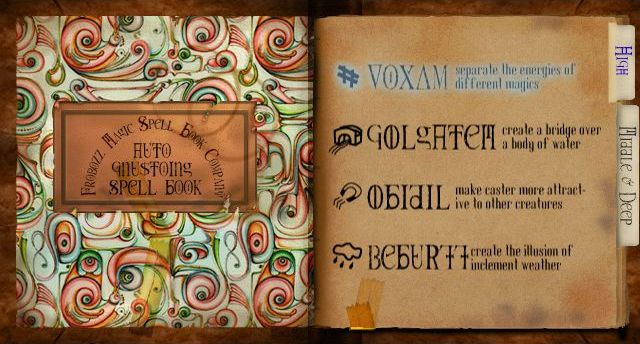 Frobozz Magic Spell Book Company
Auto
Gnustoing
Spell Book
VOXAM separate the energies of
different magics
GOLGATEM create a bridge over
a body of water
OBIDIL make caster more attract-
ive to other creatures
BEBURTT create the illusion of
inclement weather
High
Middle & Deep